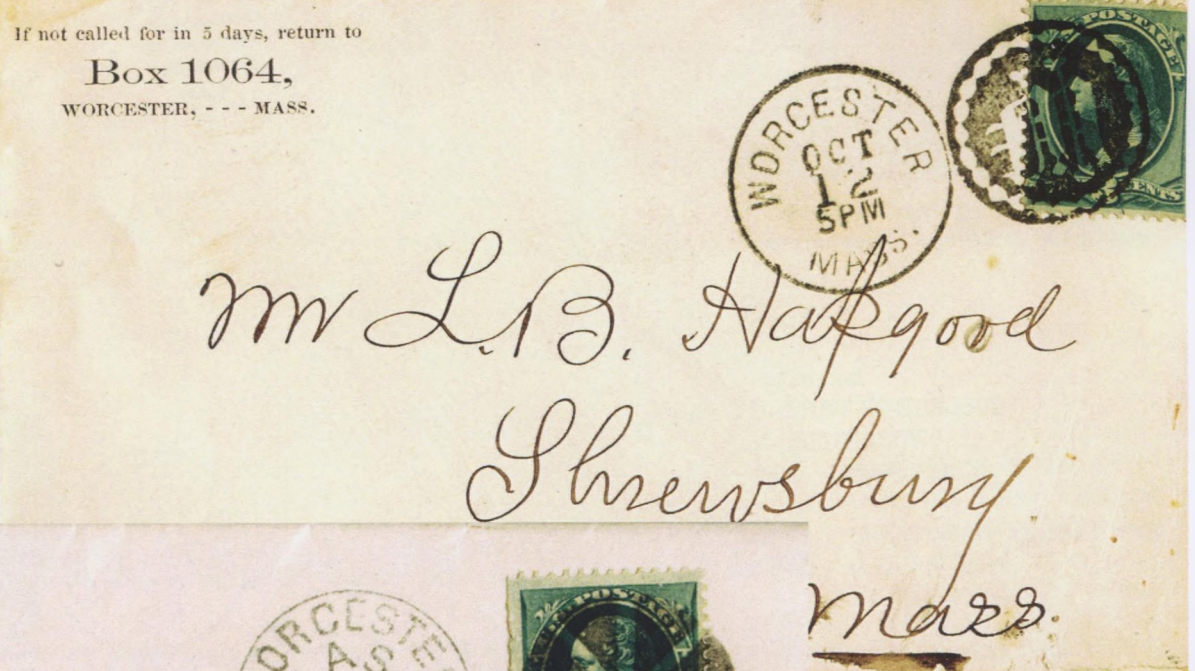 If not called for in 5 days, return to
Box 1064,
WORCESTER, - - - MASS.
WORCESTER
OCT
12
5PM
MASS.
POSTAGE
CENTS
Mr L. B. Hapgood
Shrewsbury
Mass.
POSTAGE